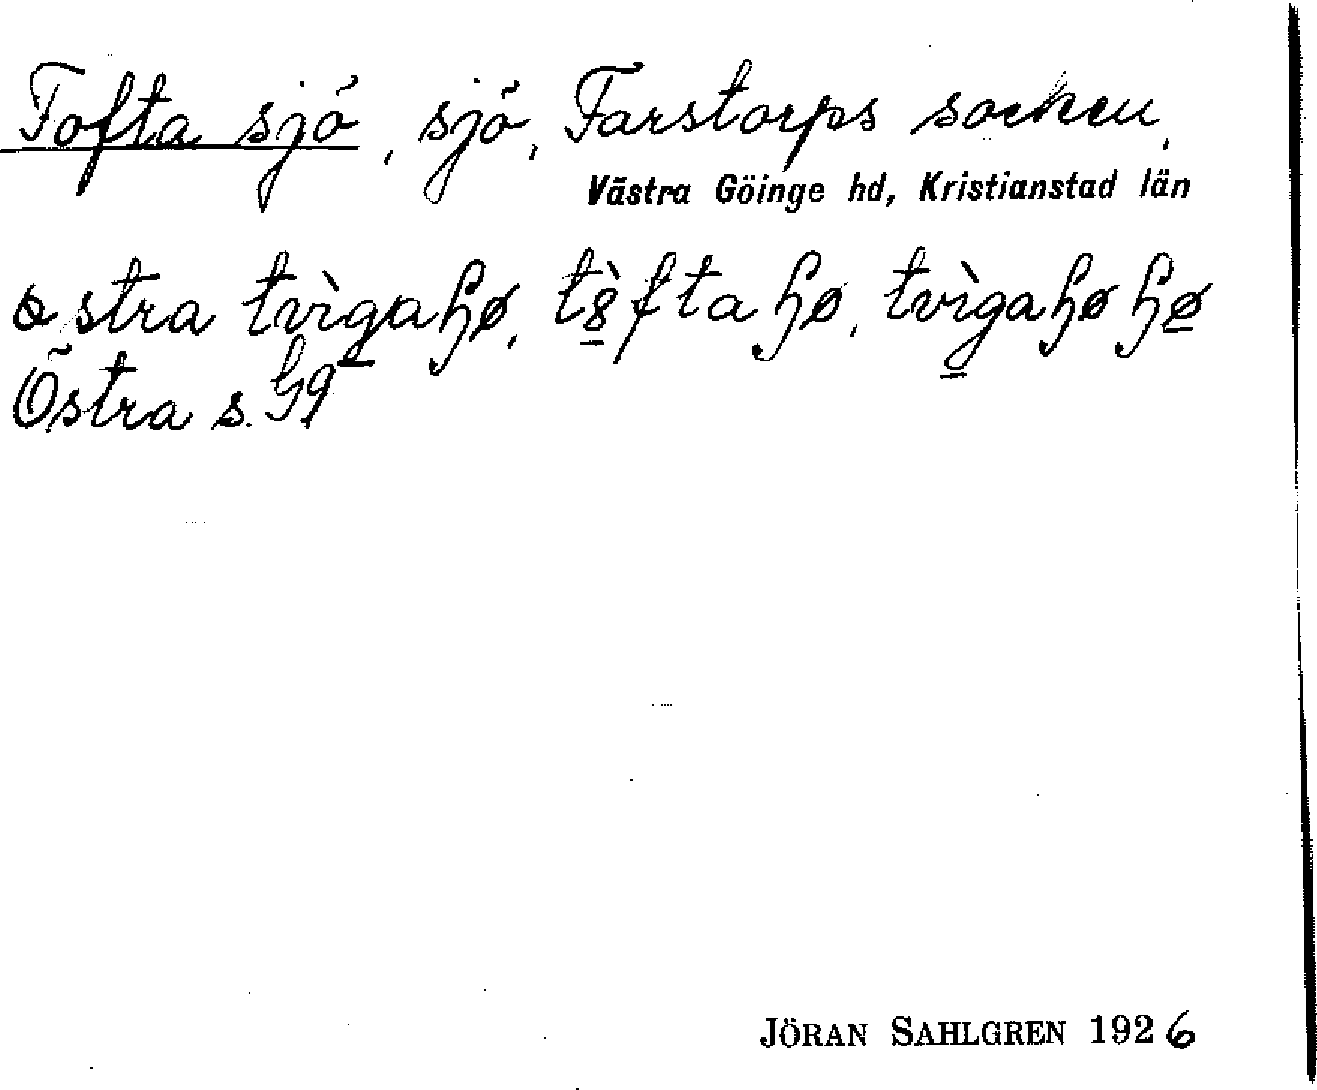 Tofta sjö, sjö, Farstorps socken,
Västra Göinge hd, Kristianstad län
østra tvìgaɧø, tòftaɧø, tvìgaɧø ɧø
Östra s. 59
JÖRAN SAHLGREN 1926